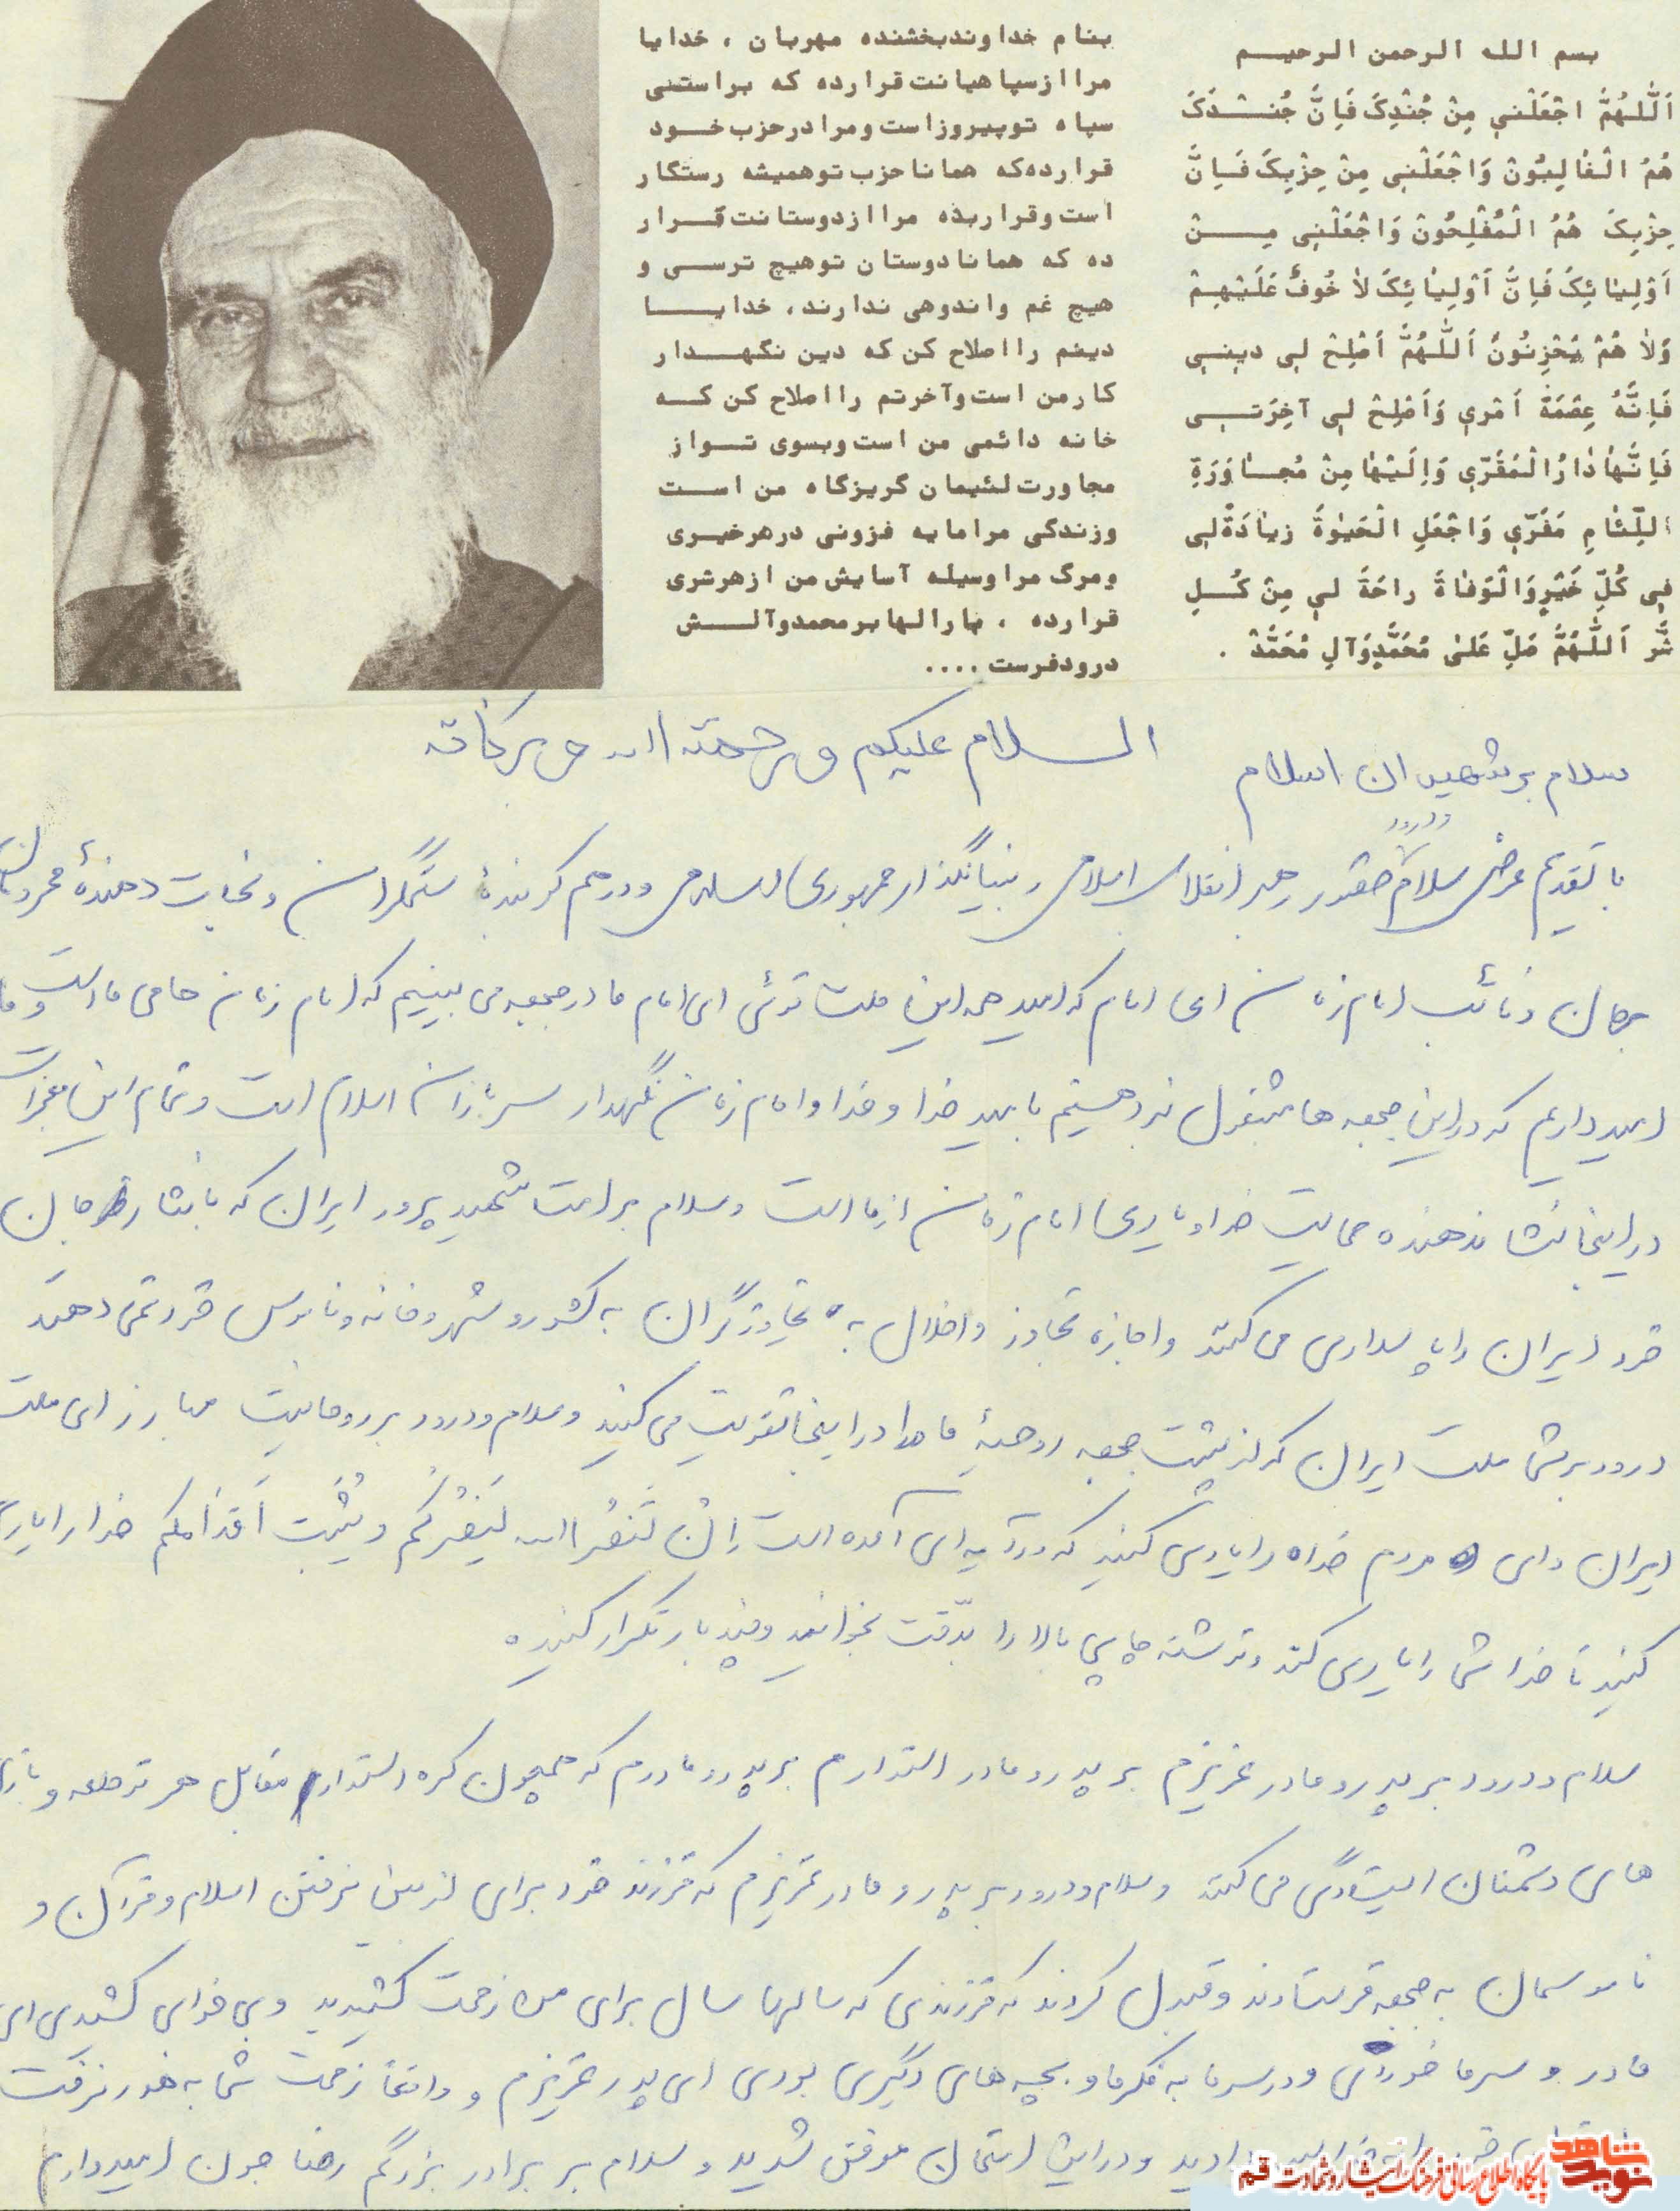 بسم الله الرحمن الرحیم
اَللّهُمَّ اجْعَلْنی مِنْ جُنْدِکَ فَاِنَّ جُنْدَکَ
هُمُ الْغالِبُونَ وَاجْعَلْنی مِنْ حِزْبِکَ فَاِنَّ
حِزْبِکَ هُمُ الْمُفْلِحُونَ وَاجْعَلْنی مِنْ
اَوْلِیائِکَ فَاِنَّ اَوْلِیائِکَ لا خُوفٌ عَلَیْهِمْ
وَلا هُمْ یَحْزِنُونَ اَللّهُمَّ اَصْلِحْ لی دینی
فَاِنَّهُ عِصْمَةُ اَمْری وَاَصْلِحْ لی آخِرَتی
فَاِنَّها دارُالْمَقَرّی وَاِلَیْها مِنْ مُجاوَرَةِ
اللِّئامِ مَفَرّی وَاجْعَلِ الْحَیوٰةَ زیادَةً لی
فی کُلِّ خَیْرٍ وَالْوَفاةَ راحَةً لی مِنْ کُلِ
شَّرٍ اَللّهُمَّ صَلِّ عَلی مُحَمَّدٍ وَآلِ مُحَمَّدْ .
بنام خداوندبخشنده مهربان ، خدایا
مرا ازسپاهیانت قرارده که براستی
سپاه توپیروزاست ومرا درحزب خود
قرارده که همانا حزب توهمیشه رستگار
است وقراربده مرا ازدوستانت قرار
ده که همانا دوستان توهیچ ترسی و
هیچ غم واندوهی ندارند، خدایا
دینم را اصلاح کن که دین نگهدار
کارمن است وآخرتم را اصلاح کن که
خانه دائمی من است وبسوی تو از
مجاورت لئیمان گریزگاه من است
وزندگی مرا مایه فزونی درهرخیری
ومرگ مرا وسیله آسایش من ازهرشری
قرارده ، بارالها برمحمدوآلش
درودفرست ....
السلام علیکم و رحمته الله و برکاته
سلام بر شهیدان اسلام
با تقدیم عرض سلام و درود حضور رهبر انقلاب اسلامی و بنیانگذار جمهوری اسلامی و درهم کوبندهٔ ستمگران و نجات دهندهٔ محرومان
جهان و نائب امام زمان ای امام که امید همه این ملت توئی ای امام ما در جبهه می بینیم که امام زمان حامی ما است و ما
امیدواریم که در این جبهه ها مشغول نبرد هستیم با امید خدا و خدا و امام زمان نگهدار سربازان اسلام است و تمام این معجزات
در اینجا نشاندهنده حمایت خدا و یاری امام زمان از ما است و سلام بر امت شهید پرور ایران که با نثار جان
خود ایران را پاسداری می کنند و اجازه تجاوز و اخلال به تجاوزگران به کشور و شهر و خانه و ناموس خود نمی دهند
درود بر شما ملت ایران که از پشت جبهه روحیهٔ ما را در اینجا تقویت می کنید و سلام و درود بر روحانیت مبارز ای ملت
ایران و ای مردم خدا را یاری کنید که در آیه ای آمده است اِنْ تَنصُر الله یَنصُرکُم و یُثَبِت اَقدامکم خدا را یاری
کنید تا خدا شما را یاری کند و نوشته چاپی بالا را بدقت بخوانید و چند بار تکرار کنید.
سلام و درود بر پدر و مادر عزیزم بر پدر و مادر استوارم بر پدر و مادرم که همچون کوه استوار مقابل هر توطئه و
های دشمنان ایستادگی می کنند و سلام و درود بر پدر و مادر عزیزم که فرزند خود برای از بین نرفتن اسلام و قرآن و
ناموسمان به جبهه فرستادند و قبول کردند که فرزندی که سالها سال برای من زحمت کشیدید و بی خوابی کشیدی ای
مادر و سرما خوردی و در سرما به فکر ما و بچه های دیگری بودی ای پدر عزیزم و واقعاً زحمت شما به هدر نرفت
دادید و در این امتحان موفق شدید و سلام بر برادر بزرگم رضا جون امیدوارم
نوید شاهد
پایگاه اطلاع رسانی فرهنگ ایثار و شهادت قم